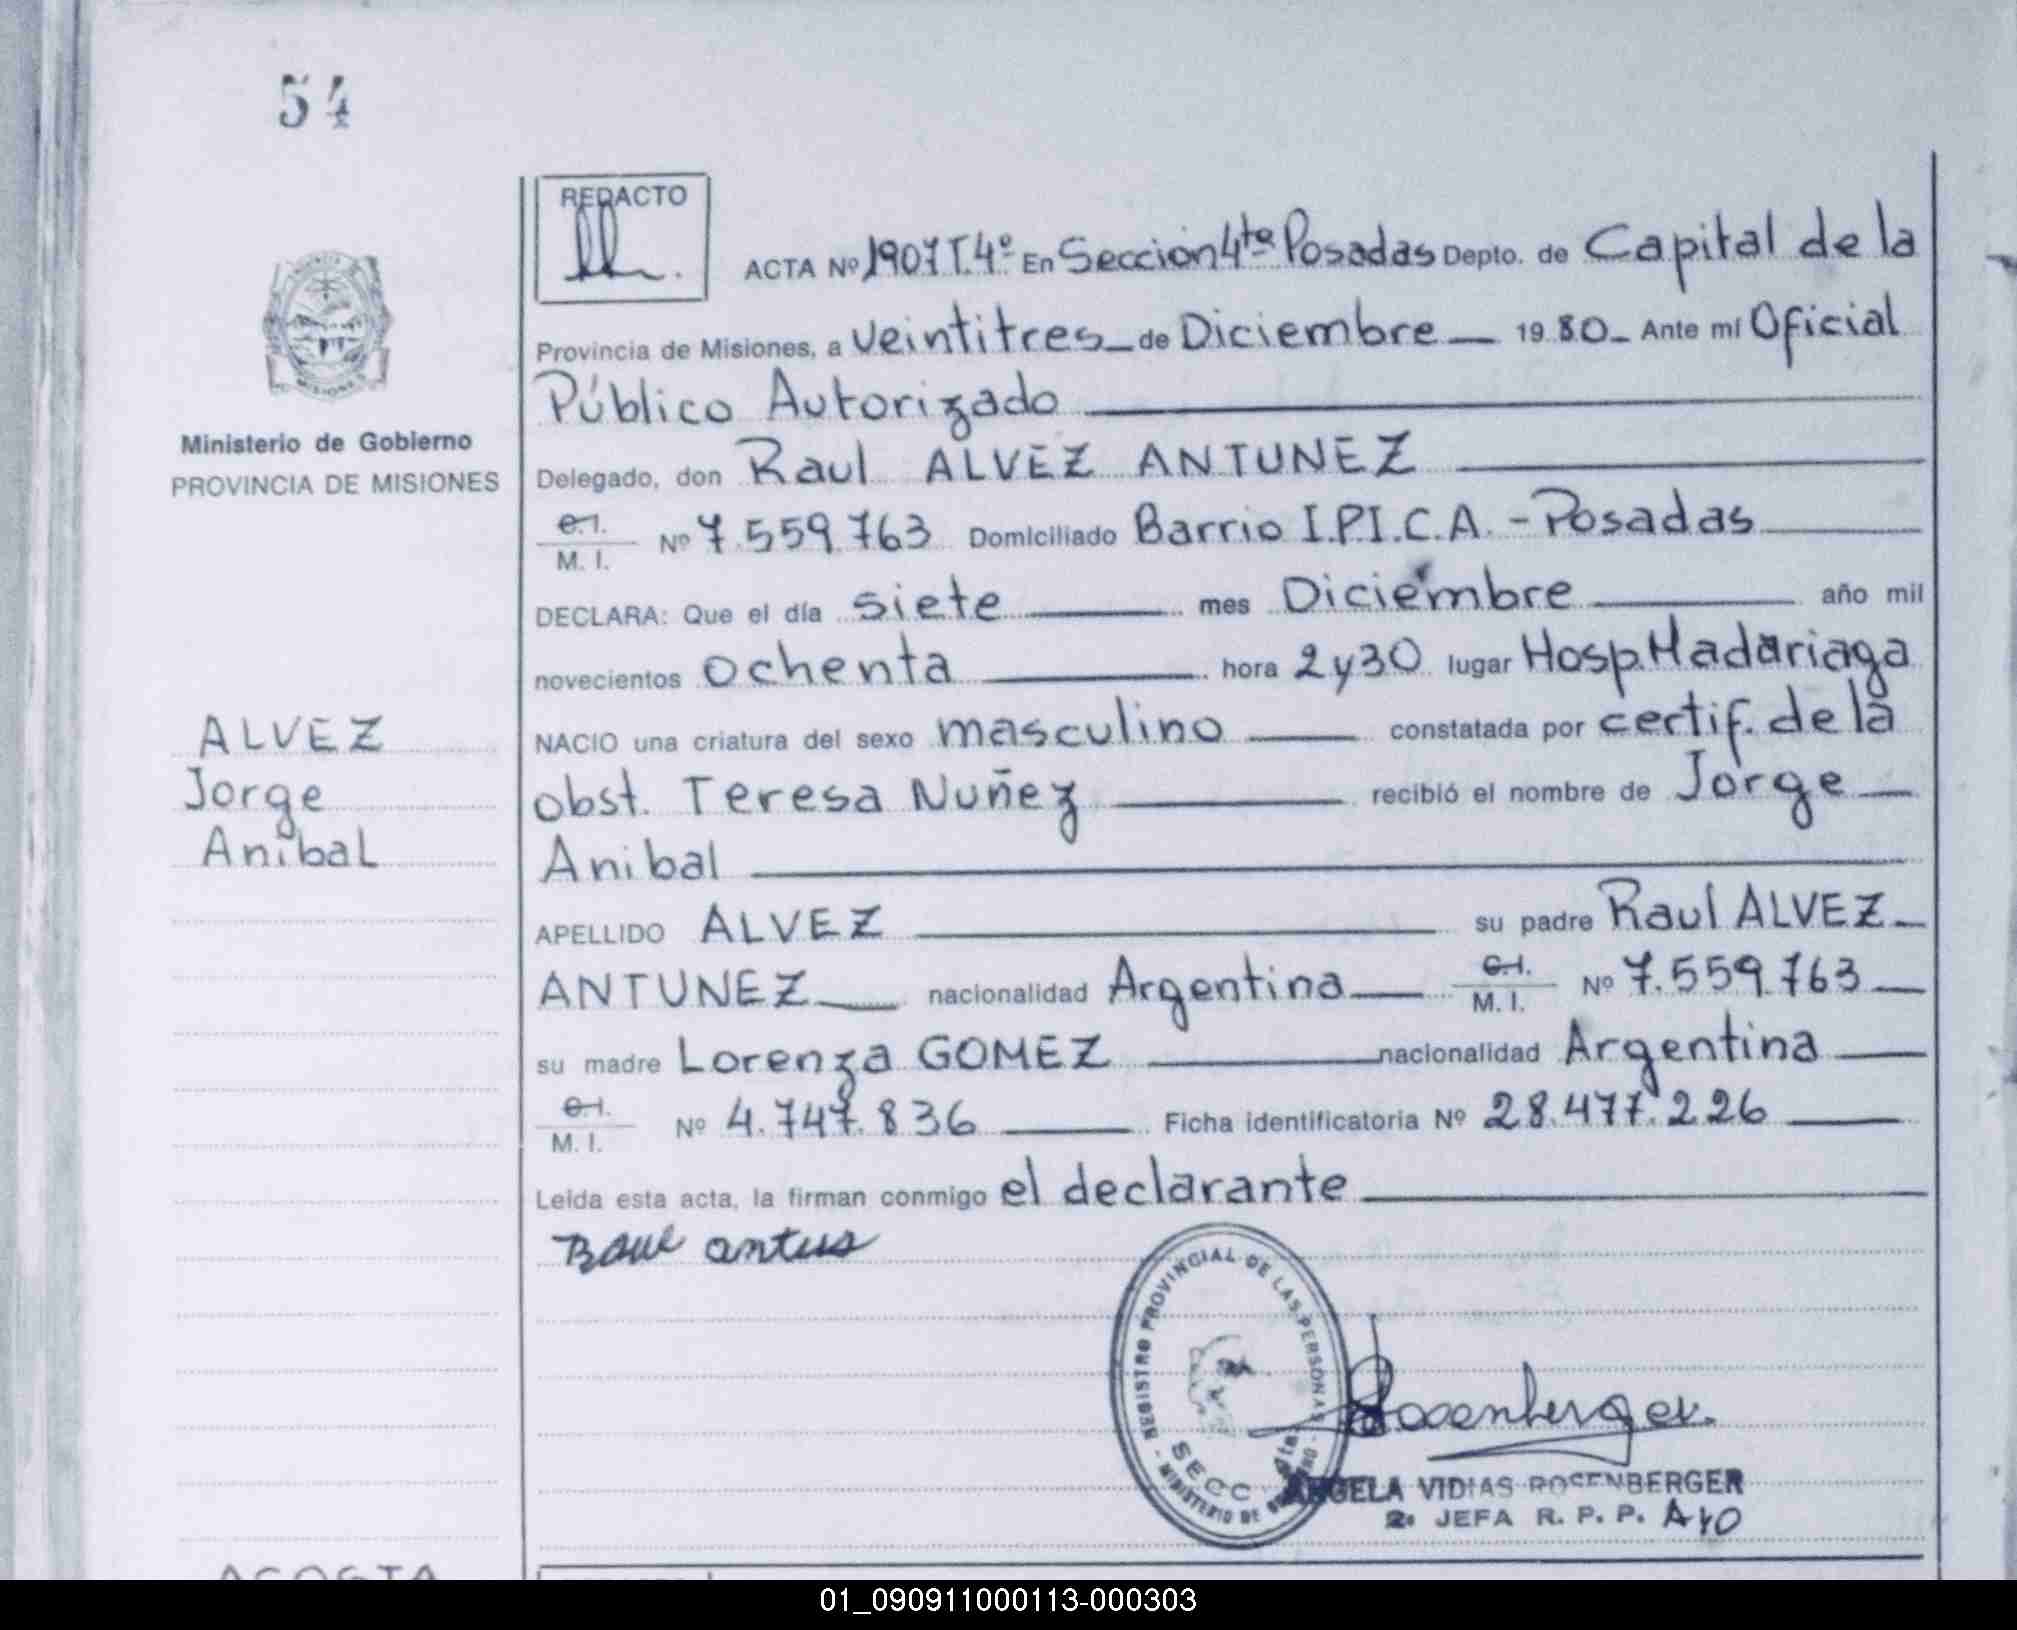 54
REDACTO
ACTA Nº 1907 T.4º En Sección 4ta Posadas Depto. de Capital de la
Provincia de Misiones, a veintitres de Diciembre 1980 Ante mí Oficial
Público Autorizado
Ministerio de Gobierno
PROVINCIA DE MISIONES
Delegado, don Raul ALVEZ ANTUNEZ
C.I.
M. I. Nº 7.559.763 Domiciliado Barrio I.P.I.C.A. - Posadas
DECLARA: Que el día siete mes Diciembre año mil
novecientos ochenta hora 2 y 30 lugar Hosp. Madariaga
ALVEZ
Jorge
Anibal
NACIO una criatura del sexo masculino constatada por certif. de la
obst. Teresa Nuñez recibió el nombre de Jorge
Anibal
APELLIDO ALVEZ su padre Raul ALVEZ
ANTUNEZ nacionalidad Argentina C.I. M. I. Nº 7.559.763
su madre Lorenza GOMEZ nacionalidad Argentina
C.I.
M. I. Nº 4.747.836 Ficha identificatoria Nº 28.477.226
Leída esta acta, la firman conmigo el declarante
REGISTRO PROVINCIAL DE LAS PERSONAS - MINISTERIO DE GOBIERNO -
SECC 4ta.
Rosenberger
ANGELA VIDIAS ROSENBERGER
2º JEFA R. P. P.
ACOSTA
01_090911000113-000303